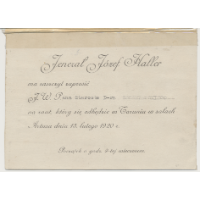 Jenerał Józef Haller
ma zaszczyt zaprosić
J. W. P.
na raut który się odbędzie w Toruniu w salach
dnia 18 lutego 1920 r.
Początek o godz. wieczorem.